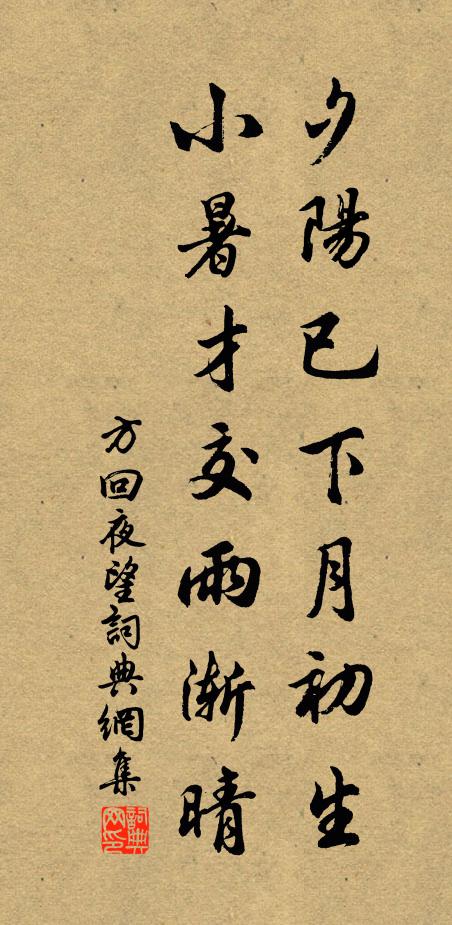 夕陽已下月初生
小暑才交雨漸晴
方回夜望詞典網集
詞典网印